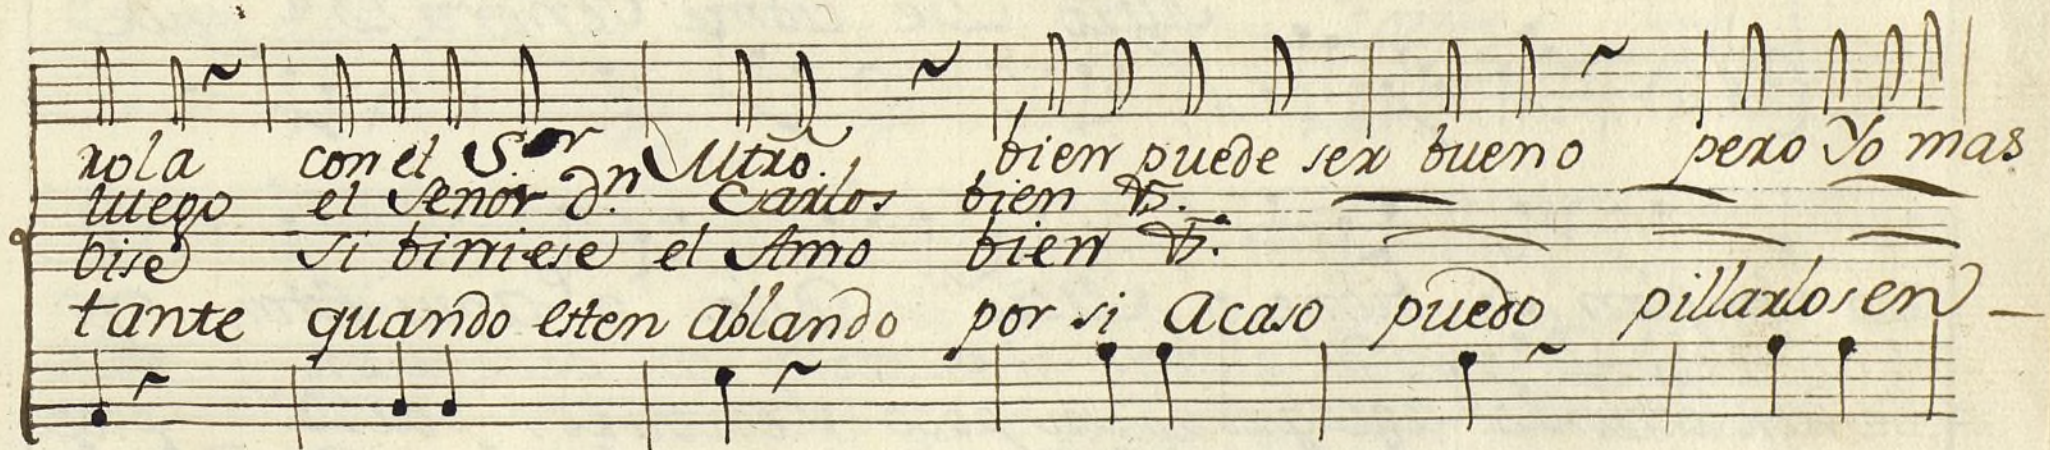 rola con el S.or Mtro. bien puede ser bueno pero Yo mas
luego el Señor d.n Carlos bien
bise si biniese el Amo bien
tante quando esten ablando por si acaso puedo pillarlos en